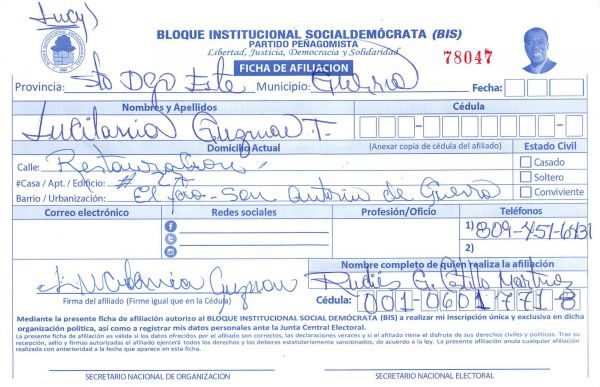 Lucy)
BLOQUE INSTITUCIONAL SOCIALDEMÓCRATA (BIS)
PARTIDO PEÑAGOMISTA
Libertad, Justicia, Democracia y Solidaridad
FICHA DE AFILIACION
78047
Provincia: Sto Dgo Este Municipio: Guerra Fecha:
Nombres y Apellidos Cédula
Guzman T.
Domicilio Actual (Anexar copia de cédula del afiliado) Estado Civil
Calle: Restauracion Casado
#Casa / Apt. / Edificio: # Soltero
Barrio / Urbanización: El - San Antonio de Guerra Conviviente
Correo electrónico Redes sociales Profesión/Oficio Teléfonos
1) 809-457-6431
2)
Nombre completo de quien realiza la afiliación
Guzman G. Martinez
Firma del afiliado (Firme igual que en la Cédula) Cédula: 001-0601771-8
Mediante la presente ficha de afiliación autorizo al BLOQUE INSTITUCIONAL SOCIAL DEMÓCRATA (BIS) a realizar mi inscripción única y exclusiva en dicha
organización política, así como a registrar mis datos personales ante la Junta Central Electoral.
La presente ficha de afiliación es válida si los datos ofrecidos por el afiliado son correctos, las declaraciones veraces y si el afiliado tiene el disfrute de sus derechos civiles y políticos. Tras su
recepción, sello y firmas autorizadas el afiliado ejercerá todos los derechos y los deberes estatutariamente sancionados, de acuerdo a la ley. La presente afiliación anula cualquier afiliación
realizada con anterioridad a la fecha que aparece en esta ficha.
SECRETARIO NACIONAL DE ORGANIZACIÓN SECRETARIO NACIONAL ELECTORAL